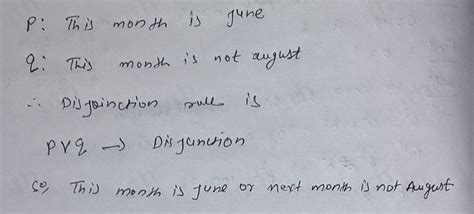 P: This month is june
q: This month is not august
∴ Disjoinction rule is
p∨q → Disjunction
So, This month is june or next month is not August